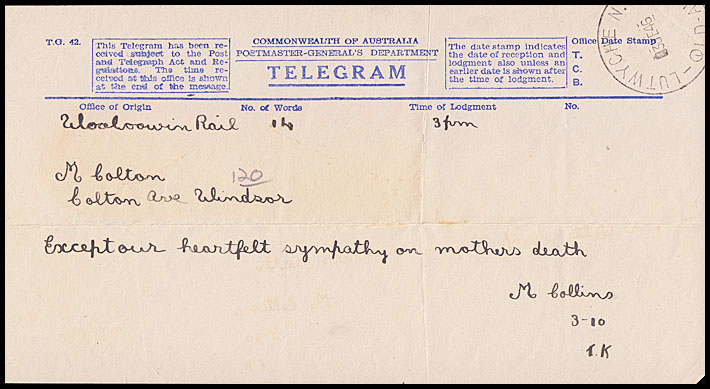 T.G. 42.
This Telegram has been re-
ceived subject to the Post
and Telegraph Act and Re-
gulations. The time re-
ceived at this office is shown
at the end of the message.
COMMONWEALTH OF AUSTRALIA
POSTMASTER-GENERAL'S DEPARTMENT
TELEGRAM
The date stamp indicates
the date of reception and
lodgment also unless an
earlier date is shown after
the time of lodgment.
Office Date Stamp
T.
C.
B.
LUTWYCHE N.
Office of Origin No. of Words Time of Lodgment No.
Wooloowin Rail 14 3pm
M Colton 120
Colton Ave Windsor
Except our heartfelt sympathy on mothers death
M Collins
3-10
T.K